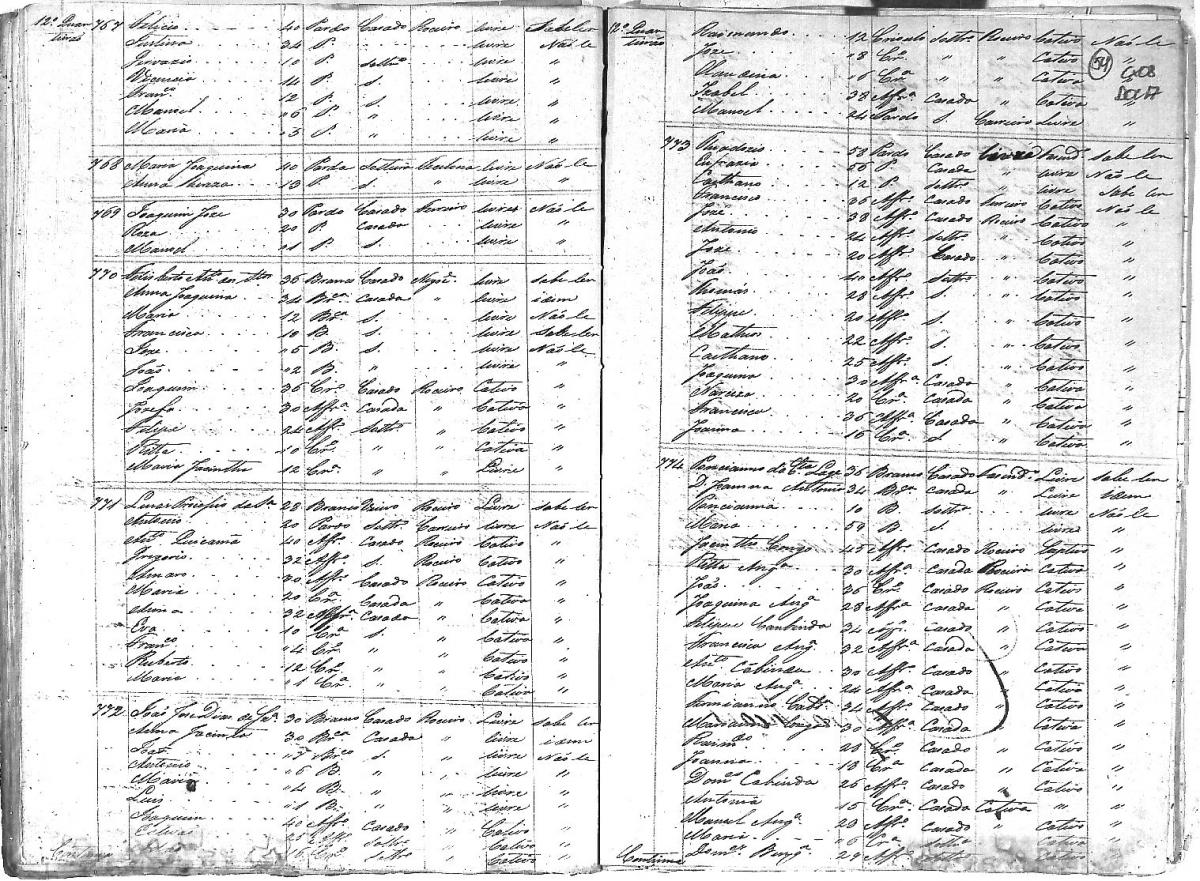 12º Quar
teirão
767 Felicio 40 Pardo Casado Roceiro livre Sabe ler
Justina 34 P. livre Não le
Gervazio 10 P. soltrº livre "
14 P. s. livre "
Franca 12 P. s. livre "
Manoel "6 P. " livre "
Maria "3 P. " livre "
768 Maria Joaquina 40 Parda Solteira livre Não le
Anna 13 P. s. " livre "
769 Joaquim Joze 30 Pardo Casado livre Não le
Roza 21 P. Casada livre "
Manoel "1 P. s. livre "
770 36 Branco Casado Negoc. livre sabe ler
Anna Joaquina 34 Brª Casada " livre idem
Maria 12 Brª s. livre Não le
Francisca 10 B. s. livre Sabe ler
Joze "5 B. s. livre Não le
João "2 B. " livre "
Joaquim 36 Crº Casado Roceiro Cativo "
Josefa 30 Affrª Casada " Cativa "
Felipe 24 Affrº Soltrº " Cativo "
Ritta 10 Crª " Cativa "
Maria Jacintha 12 Crª " " Livre "
771 28 Branco Roceiro Livre sabe ler
Antonio 20 Pardo Soltrº Carreiro livre Não le
40 Affrº Casado Roceiro Cativo "
Gregorio 32 Affrº s. Roceiro Cativo "
Amaro 30 Affrº Casado Roceiro Cativo "
Maria 20 Crª Casada " Cativa "
Anna 32 Affrª Casada " Cativa "
Eva 10 Crª s. " Cativa "
Francº "4 Crº " " Cativo "
Ruberto 12 Crº " " Cativo "
Maria "1 Crª " " Cativa "
772 João Joze Dias de 30 Branco Casado Roceiro Livre sabe ler
Anna Jacinta 30 Brca Casada " livre idem
João "7 Brco s. " livre Não le
Antonio "6 B. " " livre "
Maria "4 B. " " livre "
Luis "1 B. " " livre "
Joaquim 40 Affrº Casado " Cativo "
25 Affrº Soltrº " Cativo "
Crº soltrº " Cativo "
Continua
12º Quar
teirão
Raimundo 12 Crioulo soltrº Roceiro Cativo Não le
Joze 18 Crº " " Cativo "
Claudina 16 Crª " " Cativa "
Izabel 38 Affrª Casada " Cativa "
Manoel 24 Pardo s. Carreiro livre "
54
CX08
DOC17
773 58 Pardo Casado livre Fazendº sabe ler
Eufrazia 50 P. Casada " livre Não le
Caethano 12 P. soltrº " livre Sabe ler
Francisco 36 Affrº Casado Cativo Não le
Joze 38 Affrº Casado Roceiro Cativo "
Antonio 24 Affrº soltrº " Cativo "
Joze 20 Affrº Casado " Cativo "
João 40 Affrº soltrº " Cativo "
Thomás 28 Affrº s. " Cativo "
Felippe 20 Affrº s. " Cativo "
Matheus 22 Affrº s. " Cativo "
Caethano 25 Affrº s. " Cativo "
Joaquina 30 Affrª Casada " Cativa "
Narciza 20 Crª Casada " Cativa "
Francisca 36 Affrª Casada " Cativa "
Joanna 16 Crª s. " Cativa "
774 Ponciano da Cta Lage 36 Branco Casado Fazendº Livre sabe ler
D. Joanna Antonia 34 Brª Casada " Livre idem
Ponciana 10 B. soltrª " livre Não le
Maria 59 B. s. livre "
Jacintho Congo 45 Affrº Casado Roceiro Captivo "
Ritta Angª 30 Affrª Casada Roceira Cativa "
João 36 Crº Casado Roceiro Cativo "
Joaquina Angª 28 Affrª Casada " Cativa "
Felippe Cambinda 34 Affrº Casado " Cativo "
Francisca Angª 32 Affrª Casada " Cativa "
Antº Cabinda 30 Affrº Casado " Cativo "
Maria Angª 24 Affrª Casada " Cativa "
34 Affrº Casado " Cativo "
Marianna Congo 30 Affrª Casada " Cativa "
Raimdo 28 Crº Casado " Cativo "
Joanna 18 Crª Casada " Cativa "
Domos Cabinda 26 Affrº Casado " Cativo "
Antonia 15 Crª Casada Cativa " "
Manoel Angª 29 Affrº Casado " Cativo "
Maria "6 Crª soltª " Cativa "
Domos Bengª 29 Affrº " Cativo "
Continua